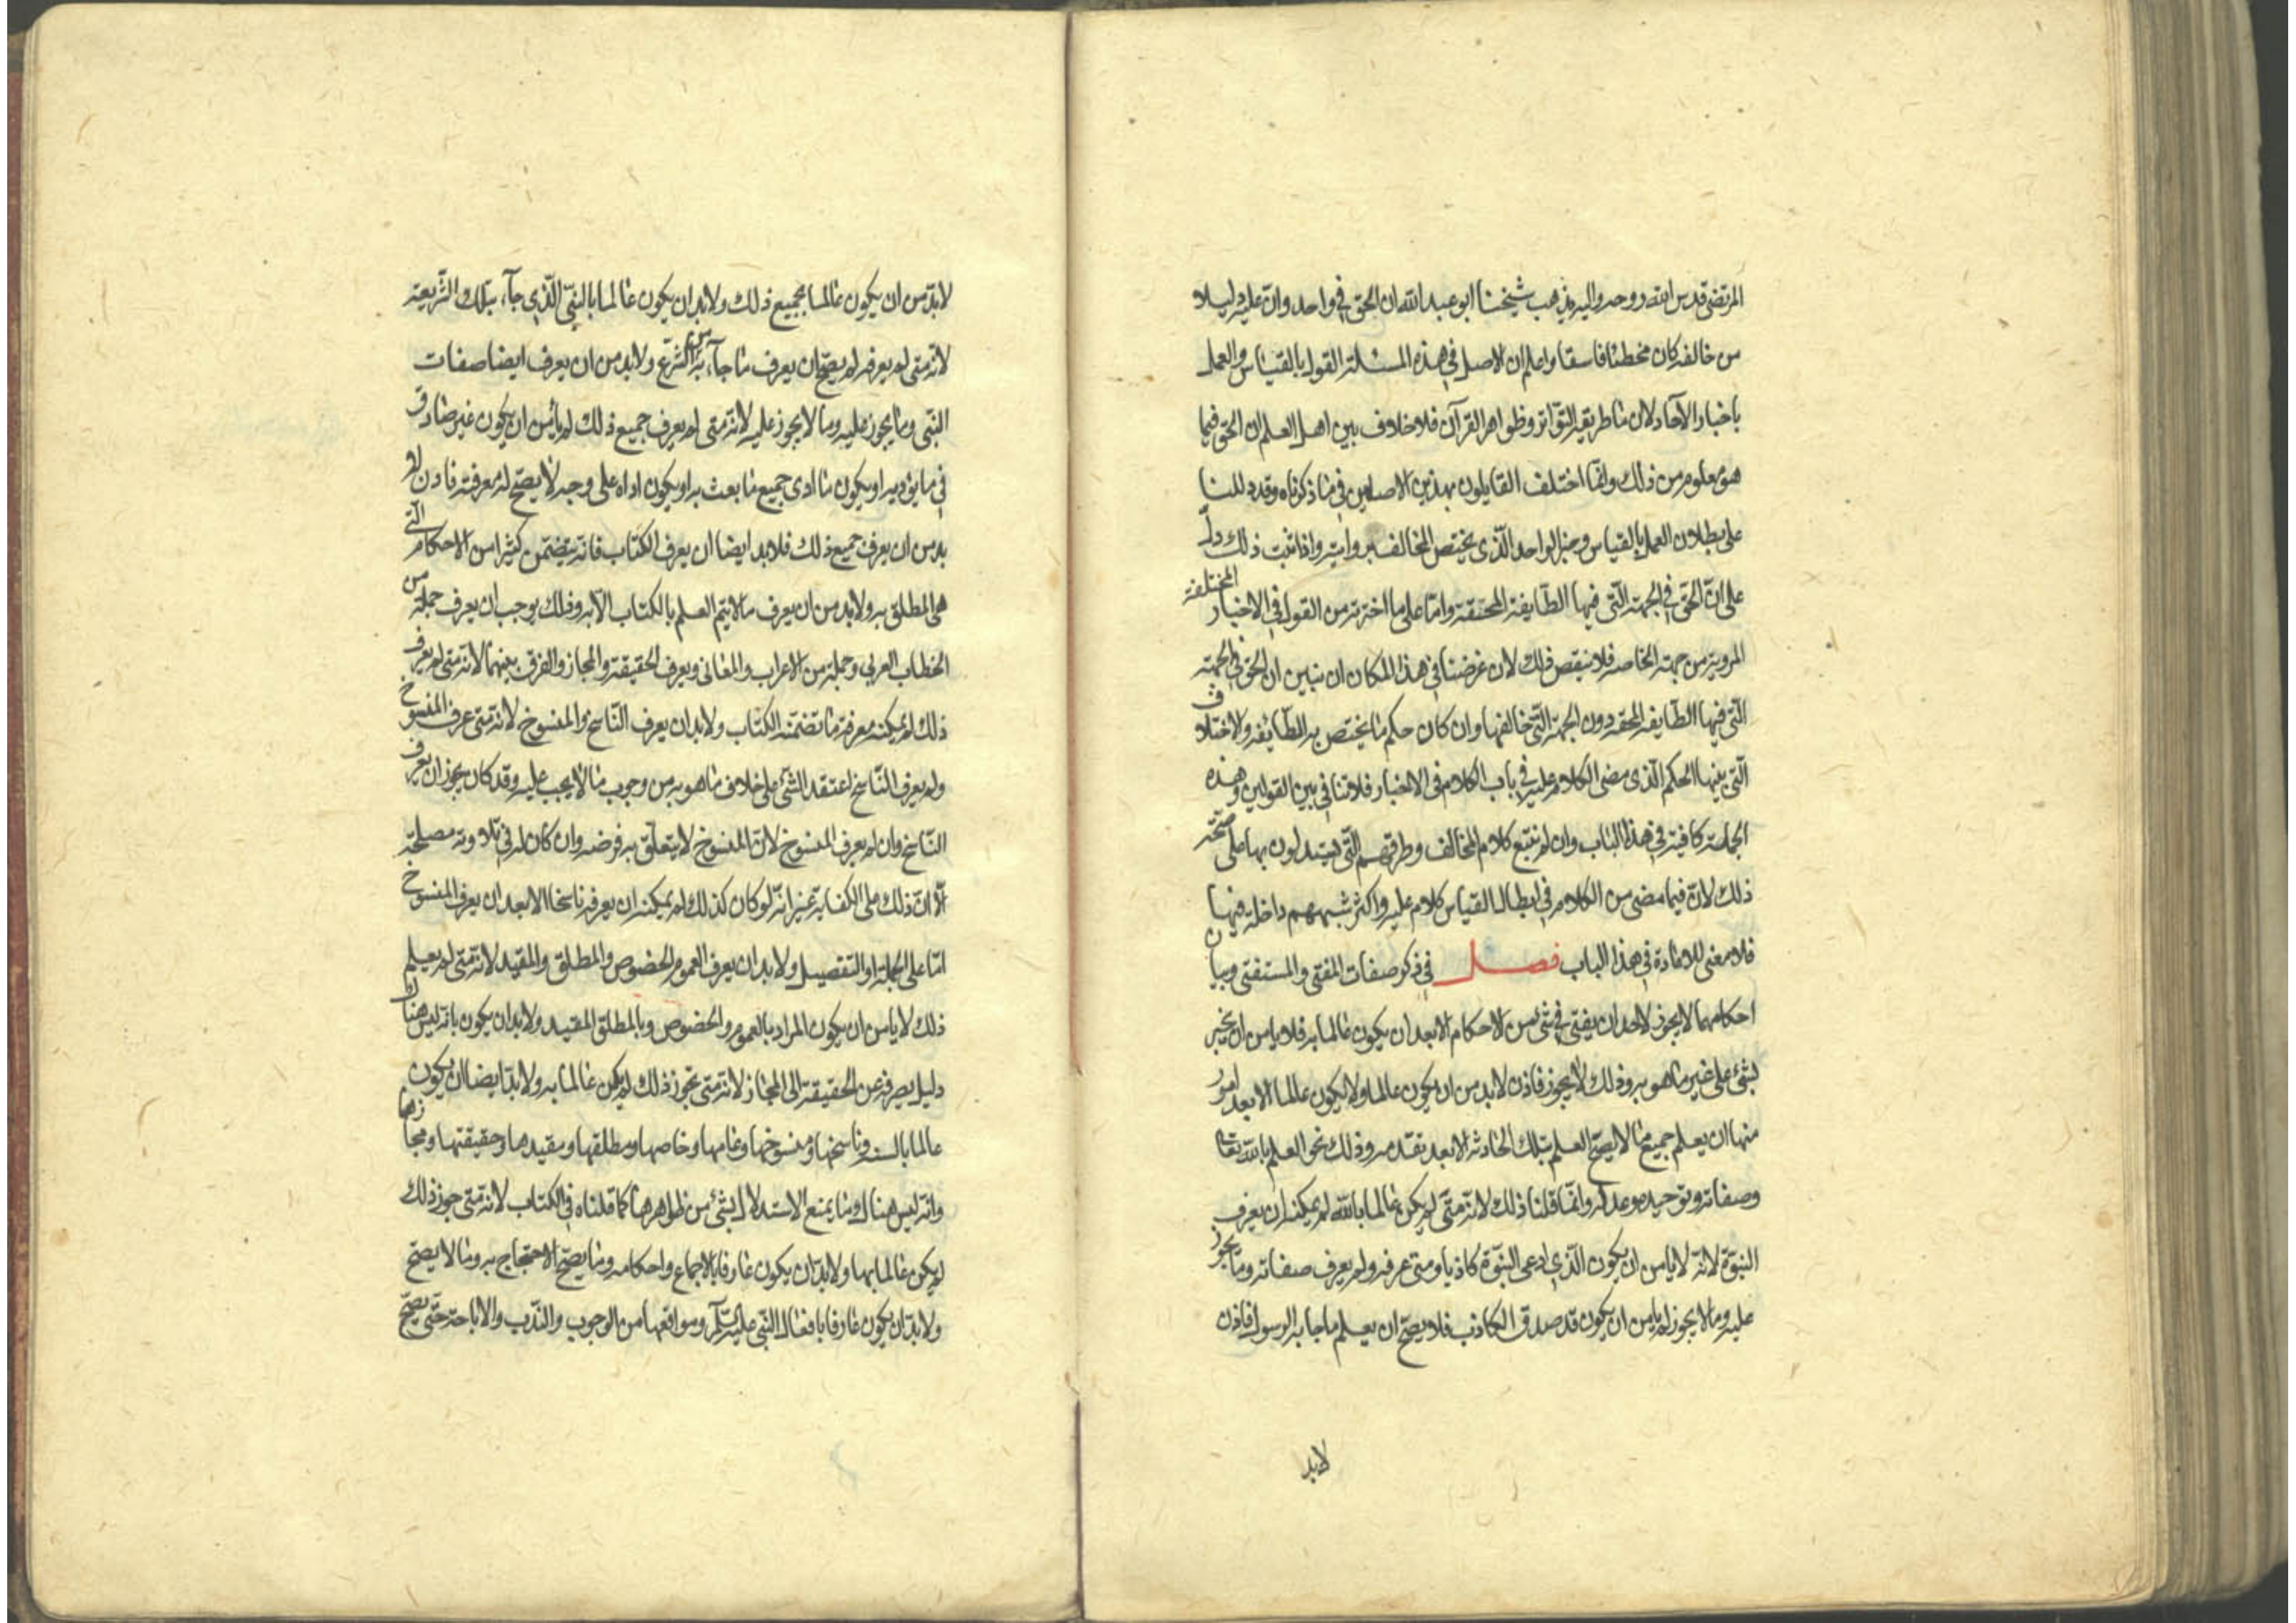 المرتضى قدس الله روحه واليه يذهب شيخنا ابو عبد الله ان الحق في واحد وان عليه دليلا
من خالفه كان مخطئا فاسقا واعلم ان الاصل في هذه المسئلة القول بالقياس والعمل
باخبار الآحاد لان ما طريقه التواتر وظواهر القرآن فلا خلاف بين اهل العلم ان الحق فيما
هو معلوم من ذلك وانما اختلف القايلون بهذين الاصلين في ما ذكرناه وقد دللنا
على بطلان العمل بالقياس وخبر الواحد الذي يختص المخالف بروايته واذا ثبت ذلك دل
على ان الحق في الجهة التي فيها الطايفة المحقة واما على ما اخترته من القول في الاخبار المختلفة
المروية من جهة الخاصة فلا ينقص ذلك لان غرضنا في هذا المكان ان نبين ان الحق في الجهة
التي فيها الطايفة المحقه دون الجهة التي خالفها وان كان حكم ما يختص به الطائفه والاختلاف
التي بينها الحكم الذي مضى الكلام عليه في باب الكلام في الاخبار فلا تنافي بين القولين وهذه
الجملة كافية في هذا الباب وان لم نتبع كلام المخالف وطرقهم التي يستدلون بها على صحة
ذلك لان فيما مضى من الكلام في ابطال القياس كلام عليه واكثر شبههم داخلة فيها
فلا معنى للاعادة في هذا الباب فصل في ذكر صفات المفتى والمستفتى وبيان
احكامهما لا يجوز لاحد ان يفتى في شئ من الاحكام الا بعد ان يكون عالما به فلا يامن ان يخبر
بشئ على غير ما هو به وذلك لا يجوز فاذن لا بد من ان يكون عالما ولا يكون عالما الا بعد امور
منها ان يعلم جميع ما لا يصح العلم بتلك الحادثة الا بعد تقدمه وذلك نحو العلم بالله تعا
وصفاته وتوحيده وعدله وانما قلنا ذلك لانه متى لم يكن عالما بالله لم يمكنه ان يعرف
النبوة لانه لا يامن ان يكون الذي ادعى النبوة كاذبا ومتى عرفه ولم يعرف صفاته وما يجوز
عليه وما لا يجوز لم يامن ان يكون قد صدق الكاذب فلا يصح ان يعلم ما جا به الرسول فاذن
لابد
لابد من ان يكون عالما بجميع ذلك ولابد ان يكون عالما بالنبي الذي جآء بتلك الشريعة
لانه متى لم يعرفه لم يصح ان يعرف ما جآء به من الشرع ولابد من ان يعرف ايضا صفات
النبي وما يجوز عليه وما لا يجوز عليه لانه متى لم يعرف جميع ذلك لم يأمن ان يكون غير صادق
في ما يؤديه او يكون ما ادى جميع ما بعث به او يكون اداه على وجه لا يصح له معرفته فاذن لا
بد من ان يعرف جميع ذلك فلابد ايضا ان يعرف الكتاب فانه يتضمن كثيرا من الاحكام التي
هي المطلق به ولابد من ان يعرف ما لا يتم العلم بالكتاب الا به وذلك يوجب ان يعرف جملة من
الخطاب العربي وجملة من الاعراب والمعاني ويعرف الحقيقة والمجاز والفرق بينهما لانه متى لم يعرف
ذلك لم يمكنه معرفة ما تضمنه الكتاب ولابد ان يعرف الناسخ والمنسوخ لانه متى عرف المنسوخ
ولم يعرف الناسخ اعتقد الشئ على خلاف ما هو به من وجوب ما لا يجب عليه وقد كان يجوز ان يعرف
الناسخ وان لم يعرف المنسوخ لان المنسوخ لا يتعلق به فرضه وان كان له في تلاوته مصلحة
الا ان ذلك على الكفاية غير انه لو كان كذلك لم يمكنه ان يعرفه ناسخا الا بعد ان يعرف المنسوخ
اما على الجملة او التفصيل ولابد ان يعرف العموم والخصوص والمطلق والمقيد لانه متى لم يعلم
ذلك لا يامن ان يكون المراد بالعموم والخصوص وبالمطلق المقيد ولابد ان يكون بانه ليس هناك
دليل يصرفه عن الحقيقة الى المجاز لانه متى تجوز ذلك لم يكن عالما به ولابد ايضا ان يكون
عالما بالسنه وناسخها ومنسوخها وعامها وخاصها ومطلقها ومقيدها وحقيقتها ومجازها
وانه ليس هناك وما يمنع الاستدلال بشئ من ظواهرها كما قلناه في الكتاب لانه متى جوز ذلك
لم يكن عالما بها ولابد ان يكون عارفا بالاجماع واحكامه وما يصح الاحتجاج به وما لا يصح
ولابد ان يكون عارفا بافعال النبي عليه السلم ومواقعها من الوجوب والندب والاباحة حتى يصح